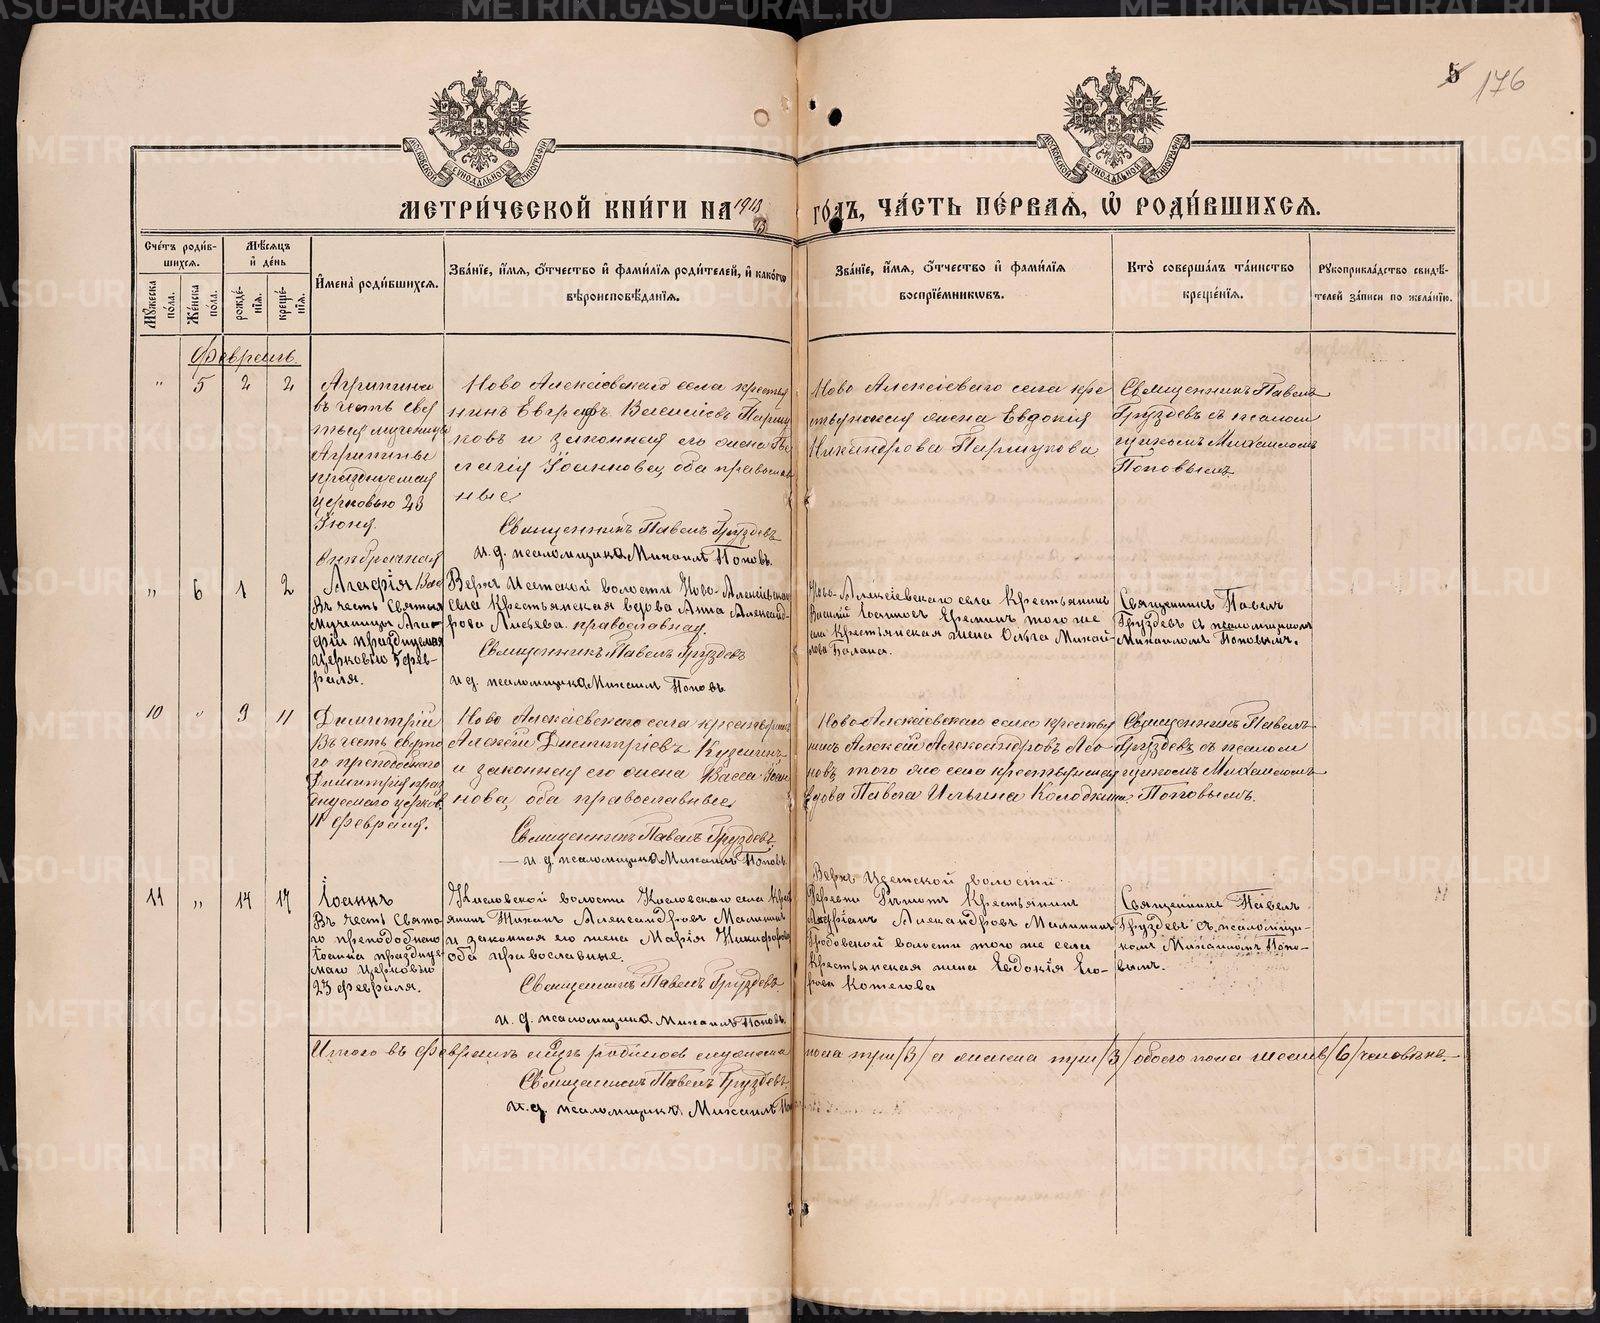 5 176
МОСКОВСКОЙ СѴНОДАЛЬНОЙ ТИПОГРАФІИ
МОСКОВСКОЙ СѴНОДАЛЬНОЙ ТИПОГРАФІИ
МЕТРИ́ЧЕСКОЙ КНИ́ГИ НА 1913 ГО́ДЪ, ЧА́СТЬ ПЕ́РВАЯ, Ѽ РОДИ́ВШИХСЯ.
Сче́тъ роди́вшихся.
Мꙋ́жеска по́ла.
Же́нска по́ла.
Мѣ́сяцъ и҆ де́нь
рожде́нїя.
креще́нїя.
И҆мена̀ роди́вшихся.
Зва́нїе, и҆́мя, ѻ҆́тчество и҆ фами́лїя роди́телей, и҆ како́гѡ вѣроисповѣ́данїя.
Зва́нїе, и҆́мя, ѻ҆́тчество и҆ фами́лїя воспрїе́мникѡвъ.
Кто̀ соверша́лъ та́инство креще́нїя.
Рꙋкоприкла́дство свидѣ́телей за́писи по жела́нїю.
Февраль.
" 5 2 2
Агрипина
въ честь свя
тыя мученицы
Агрипины
празднуемая
церковью 23
Іюня.
Ново Алексіевскаго села кресть
янинъ Евграфъ Васильевъ Паршу
ковъ и законная его жена Пе
лагія Іоанновна, оба православ
ные.
Священникъ Павелъ Груздевъ
и. д. псаломщика Михаилъ Поповъ.
Ново Алексіеваго села кре
стьянская жена Евдокія
Никандрова Паршукова
Священникъ Павелъ
Груздевъ съ псалом
щикомъ Михаиломъ
Поповымъ.
" 6 1 2
внебрачная
Агафія
Въ честь Святыя
Мученицы Ага-
фіи празднуемая
Церковію 5 фев-
раля.
Верхъ Исетской волости Ново-Алексіевскаго
села Крестьянская вдова Анна Александ-
рова Лисьева. православная.
Священникъ Павелъ Груздевъ
и д. псаломщика Михаилъ Поповъ
Ново-Алексіевскаго села Крестьянинъ
Василій Іоанновъ Ереминъ того же
села Крестьянская жена Ольга Михай-
лова
Священникъ Павелъ
Груздевъ съ псаломщикомъ
Михаиломъ Поповымъ.
10 " 9 11
Димитрій
Въ честь свято
го преподобнаго
Димитрія праз
днуемаго церков.
11 февраля.
Ново Алексіевскаго села крестьянинъ
Алексѣй Димитріевъ Кузьминъ
и законная его жена Васса Іоан
нова, оба православные
Священникъ Павелъ Груздевъ.
и. д. псаломщика Михаилъ Поповъ.
Ново-Алексіевскаго села крестья
нинъ Алексѣй Александровъ
новъ того же села крестьянская
вдова Павла Ильина Колодкина
Священникъ Павелъ
Груздевъ съ псалом
щикомъ Михаиломъ
Поповымъ.
11 " 14 17
Іоаннъ
Въ честь Свято-
го преподобнаго
Іоанна празднуе-
маго Церковію
23 февраля.
Кисловской волости Кисловскаго села Крест
янинъ Александровъ Малининъ
и законная его жена Марія Никифорова
оба православные.
Священникъ Павелъ Груздевъ
и. д. псаломщика Михаилъ Поповъ.
Верхъ Исетской волости
Деревни Крестьянинъ
Александровъ Малининъ
Гробовской волости того же села
Крестьянская жена Евдокія Его-
рова Котегова
Священникъ Павелъ
Груздевъ съ псаломщи-
комъ Михаиломъ Попо-
вымъ.
Итого въ Февралѣ мцѣ родилось мужеска пола три /3/ а женска три /3/ обоего пола шесть /6/ человѣкъ.
Священникъ Павелъ Груздевъ.
и. д. псаломщика Михаилъ